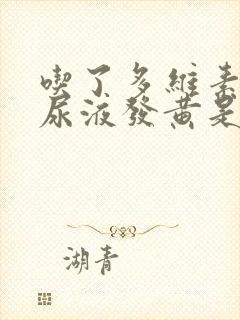 喫了多維素
尿液發黃是
湖青